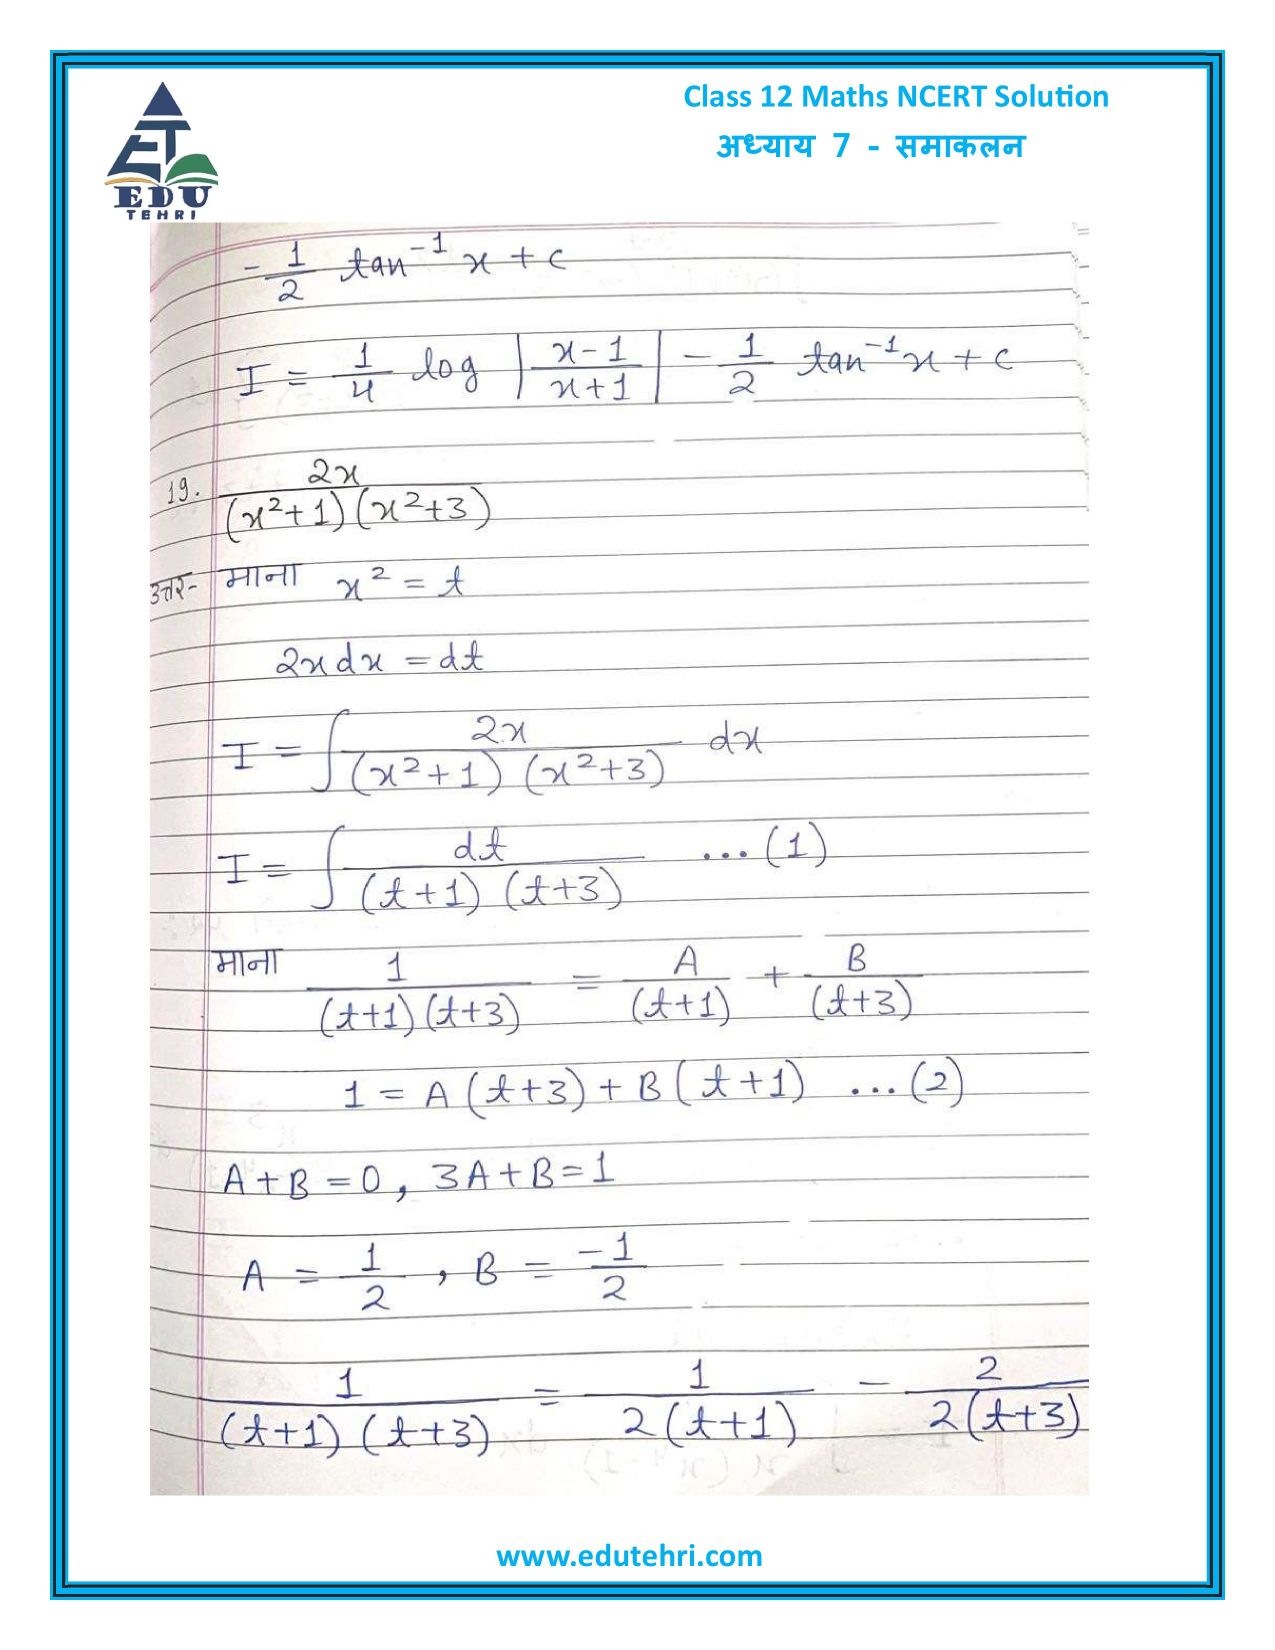 Class 12 Maths NCERT Solution
अध्याय 7 - समाकलन
EDU
TEHRI
- 1/2 tan⁻¹ x + c
I = 1/4 log |x-1/x+1| - 1/2 tan⁻¹ x + c
19. 2x/(x²+1)(x²+3)
उत्तर- माना x² = t
2x dx = dt
I = ∫ 2x/(x²+1) (x²+3) dx
I = ∫ dt/(t+1) (t+3) ...(1)
माना 1/(t+1)(t+3) = A/(t+1) + B/(t+3)
1 = A(t+3) + B(t+1) ...(2)
A+B=0, 3A+B=1
A = 1/2, B = -1/2
1/(t+1)(t+3) = 1/2(t+1) - 2/2(t+3)
www.edutehri.com